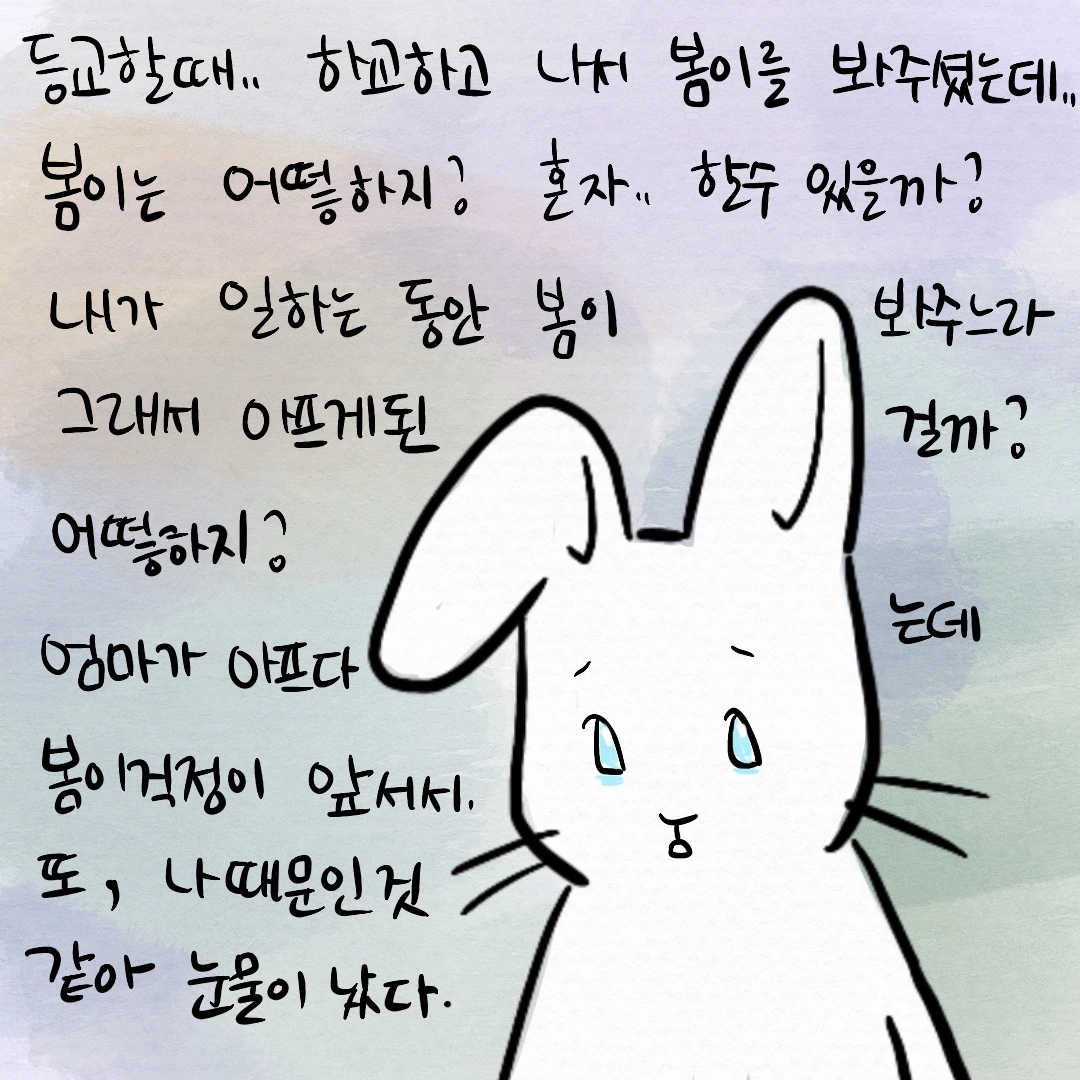 등교할때.. 하교하고 나서 봄이를 봐주셨는데..
봄이는 어떻하지? 혼자.. 할수 있을까?
내가 일하는 동안 봄이 봐주느라
그래서 아프게된 걸까?
어떻하지?
엄마가 아프다 는데
봄이걱정이 앞서서.
또, 나때문인것
같아 눈물이 났다.